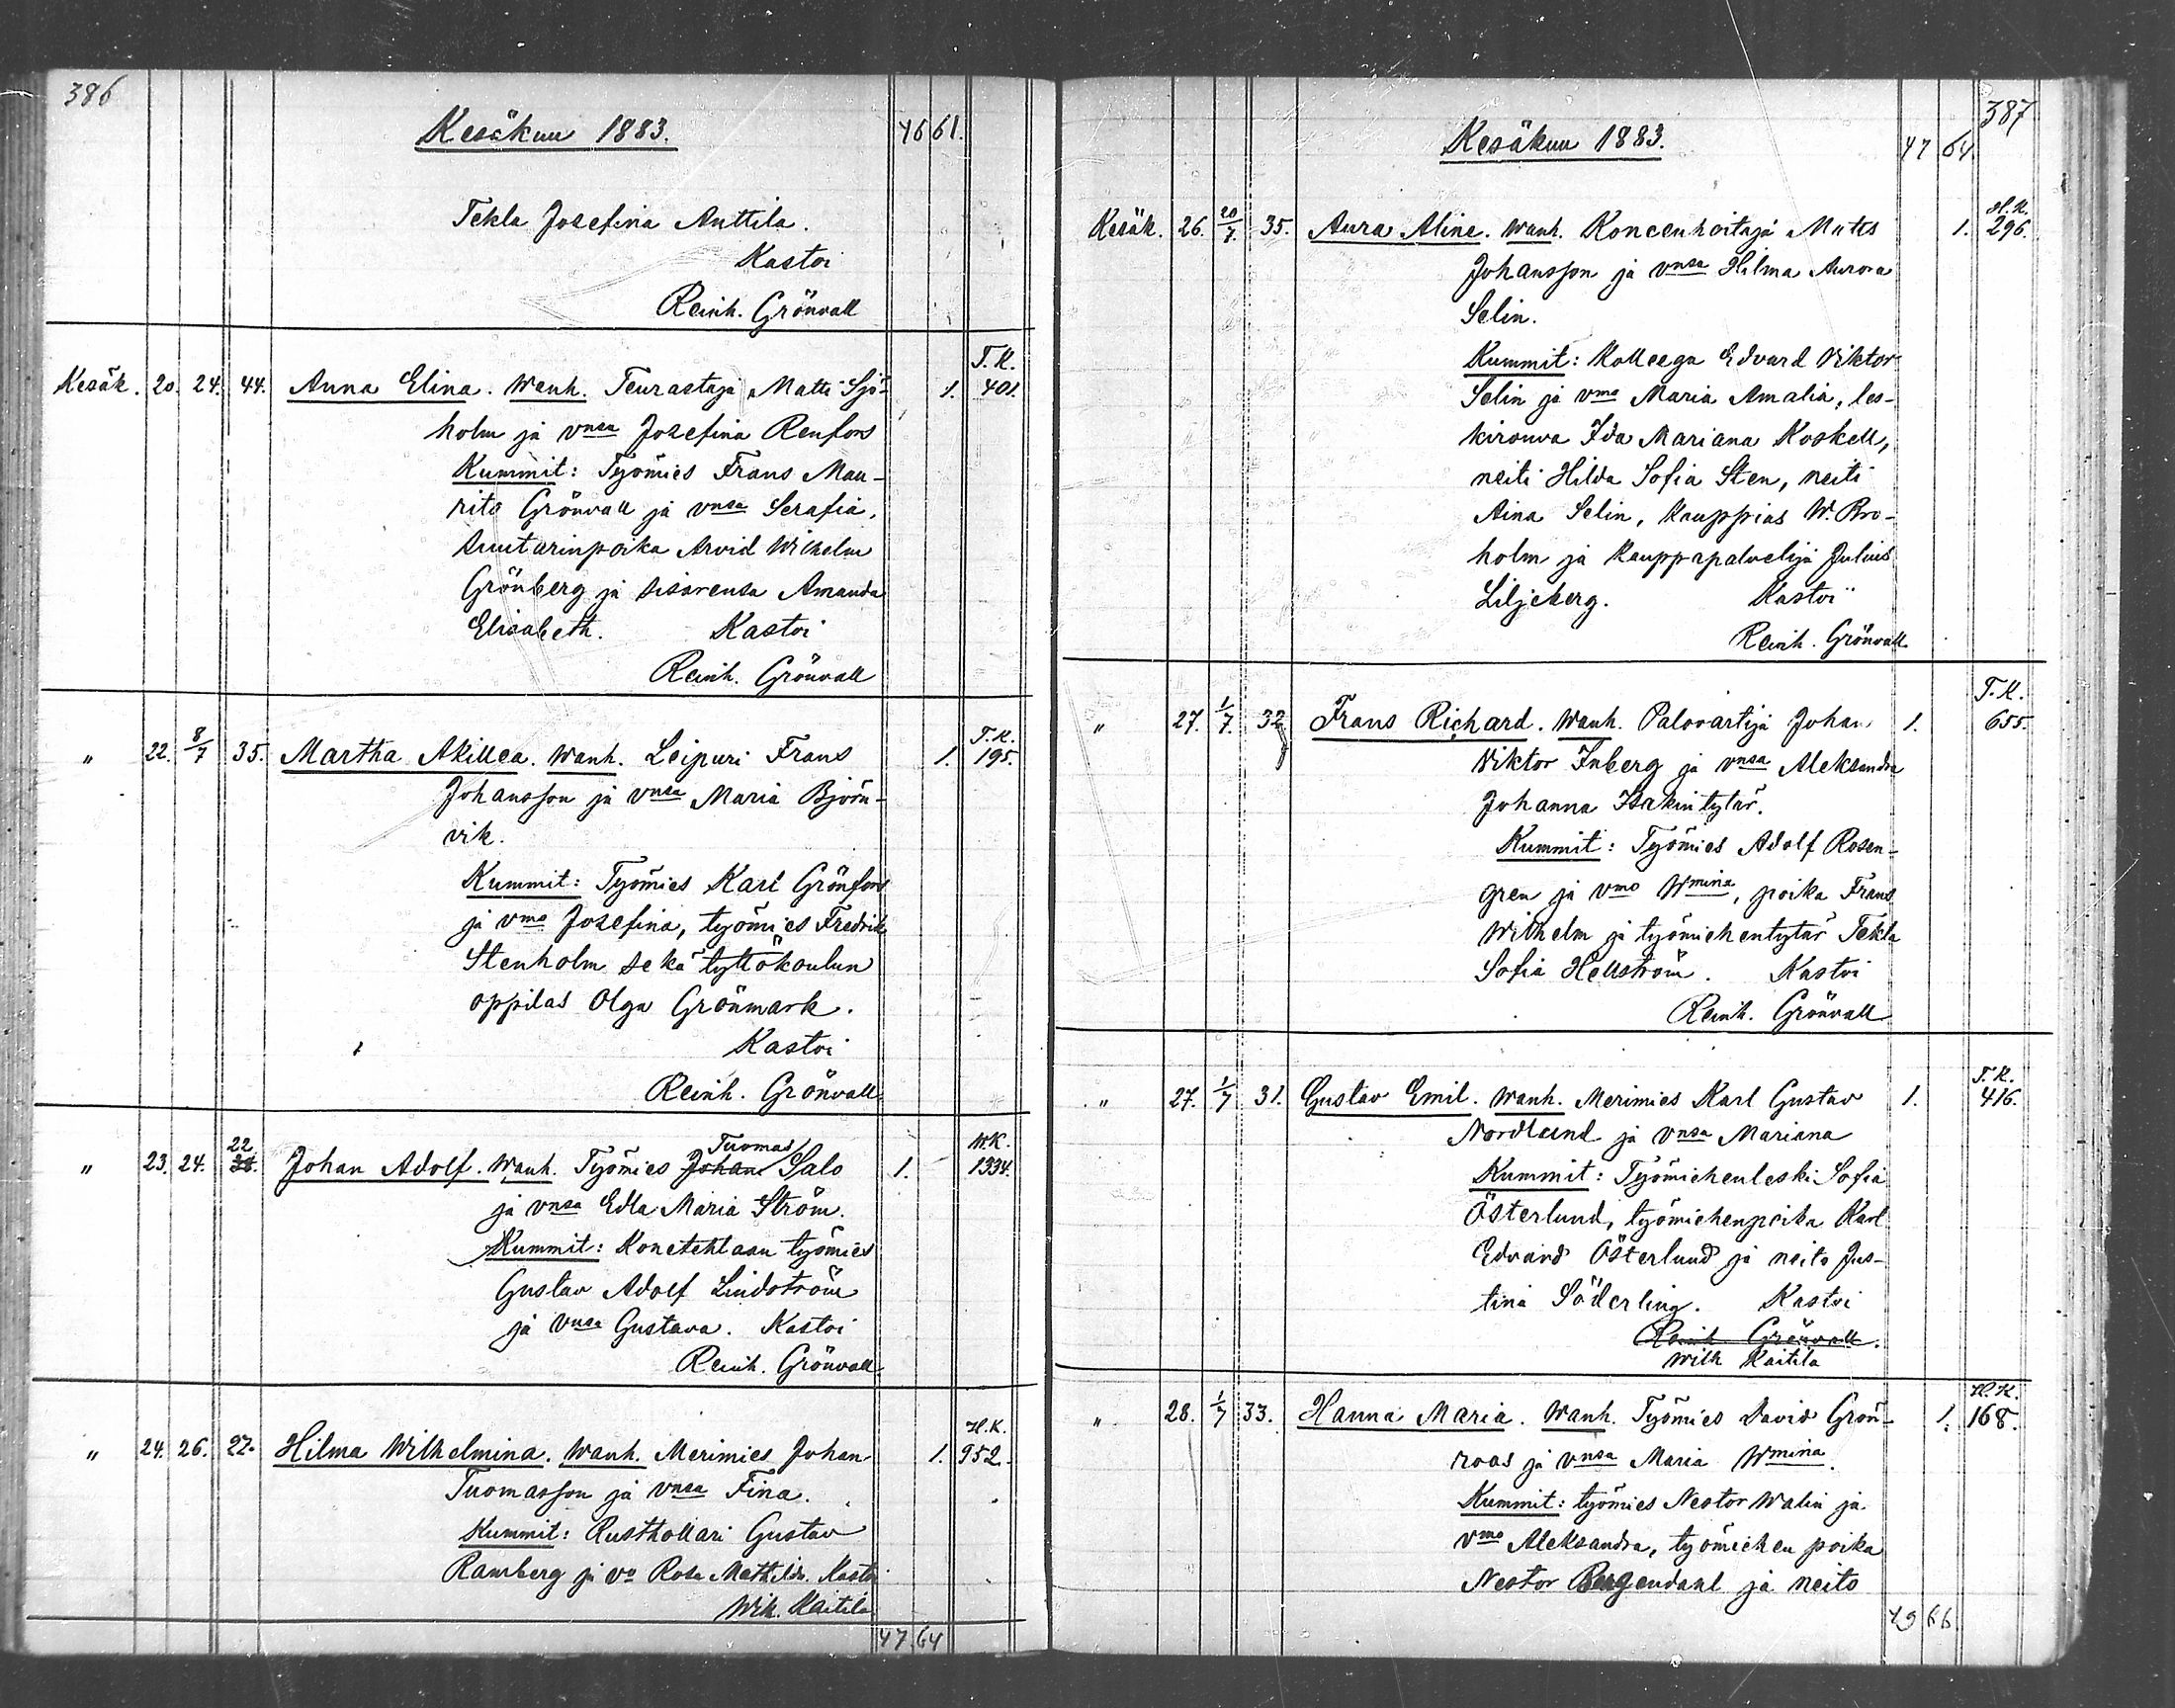 386
Kesäkuu 1883. 46 61.
Tekla Josefina Anttila.
Kastoi
Reinh. Grönvall
T.K.
Kesäk. 20. 24. 44. Anna Elina. Wanh. Teurastaja Matti Sjö- 1. 401.
holm ja vnsa Josefina Renfors
Kummit: Työmies Frans Mau-
rits Grönvall ja vnsa Serafia,
suutarinpoika Arvid Wilhelm
Grönberg ja sisarensa Amanda
Elisabeth. Kastoi
Reinh. Grönvall
T.K.
" 22. 8/7 35. Martha Akillea. Wanh. Leipuri Frans 1. 195.
Johansson ja vnsa Maria Björn-
vik.
Kummit: Työmies Karl Grönfors
ja vmo Josefina, työmies Fredrik
Stenholm sekä tyttökoulun
oppilas Olga Grönmark.
Kastoi
Reinh. Grönvall
22 Tuomas W.K.
" 23. 24. Johan Adolf. Wanh. Työmies Johan Salo 1. 1334.
ja vnsa Edla Maria Ström.
Kummit: Konetehtaan työmies
Gustav Adolf Lindström
ja vnsa Gustava. Kastoi
Reinh. Grönvall
H.K.
" 24. 26. 27. Hilma Wilhelmina. Wanh. Merimies Johan 1. 952.
Tuomasson ja vnsa Fina.
Kummit: Rusthollari Gustav
Ramberg ja vo Rosa Mathilda. Kastoi
Wilh. Kaitila
47 64
387
Kesäkuu 1883. 47 64
H.K.
Kesäk. 26. 20/7. 35. Aura Aline. Wanh. Koneenhoitaja Mats 1. 296.
Johansson ja vnsa Hilma Aurora
Selin.
Kummit: Kolleega Edvard Viktor
Selin ja vmo Maria Amalia, les-
kirouva Ida Mariana Koskell,
neiti Hilda Sofia Sten, neiti
Aina Selin, kauppias W. Bro-
holm ja kauppapalvelija Julius
Liljeberg. Kastoi
Reinh. Grönvall
T.K.
" 27. 1/7. 32 Frans Richard. Wanh. Palovartija Johan 1. 655.
Viktor Inberg ja vnsa Aleksandra
Johanna Isakintytär.
Kummit: Työmies Adolf Rosen-
gren ja vmo Wmina, poika Frans
Wilhelm ja työmiehentytär Tekla
Sofia Hellström. Kastoi
Reinh. Grönvall
T.K.
" 27. 1/7 31. Gustav Emil. Wanh. Merimies Karl Gustav 1. 416.
Nordlund ja vnsa Mariana
Kummit: Työmiehenleski Sofia
Österlund, työmiehenpoika Karl
Edvard Österlund ja neito Jus-
tina Söderling. Kastoi
Reinh Grönvall.
Wilh Kaitila
H.K.
" 28. 1/7 33. Hanna Maria. Wanh. Työmies David Grön- 1. 168.
roos ja vnsa Maria Wmina.
Kummit: työmies Nestor Walin ja
vmo Aleksandra, työmiehen poika
Nestor Bergendahl ja neito
49 66